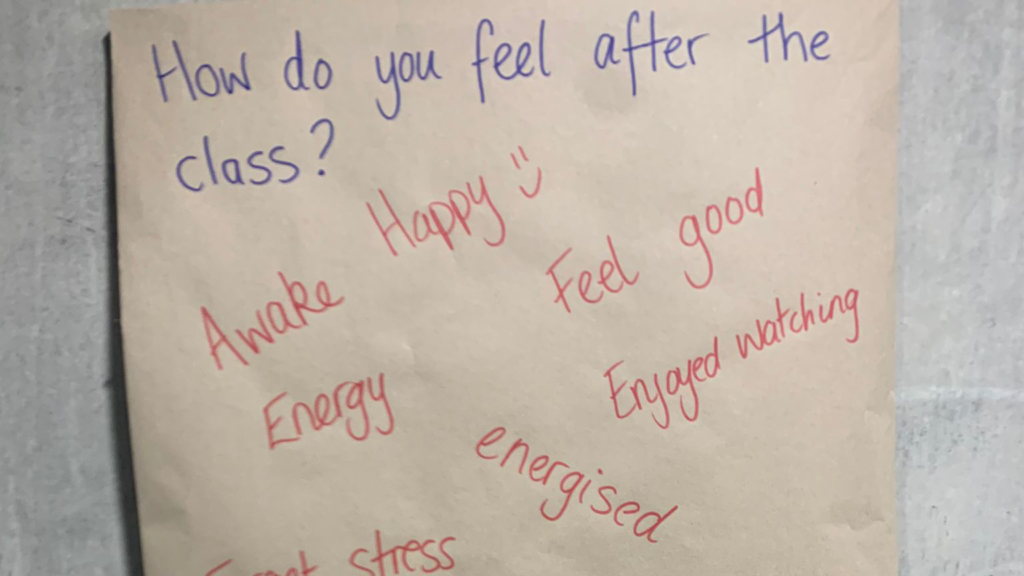 How do you feel after the
class?
Happy
Feel good
Awake
Enjoyed watching
Energy
energised
stress